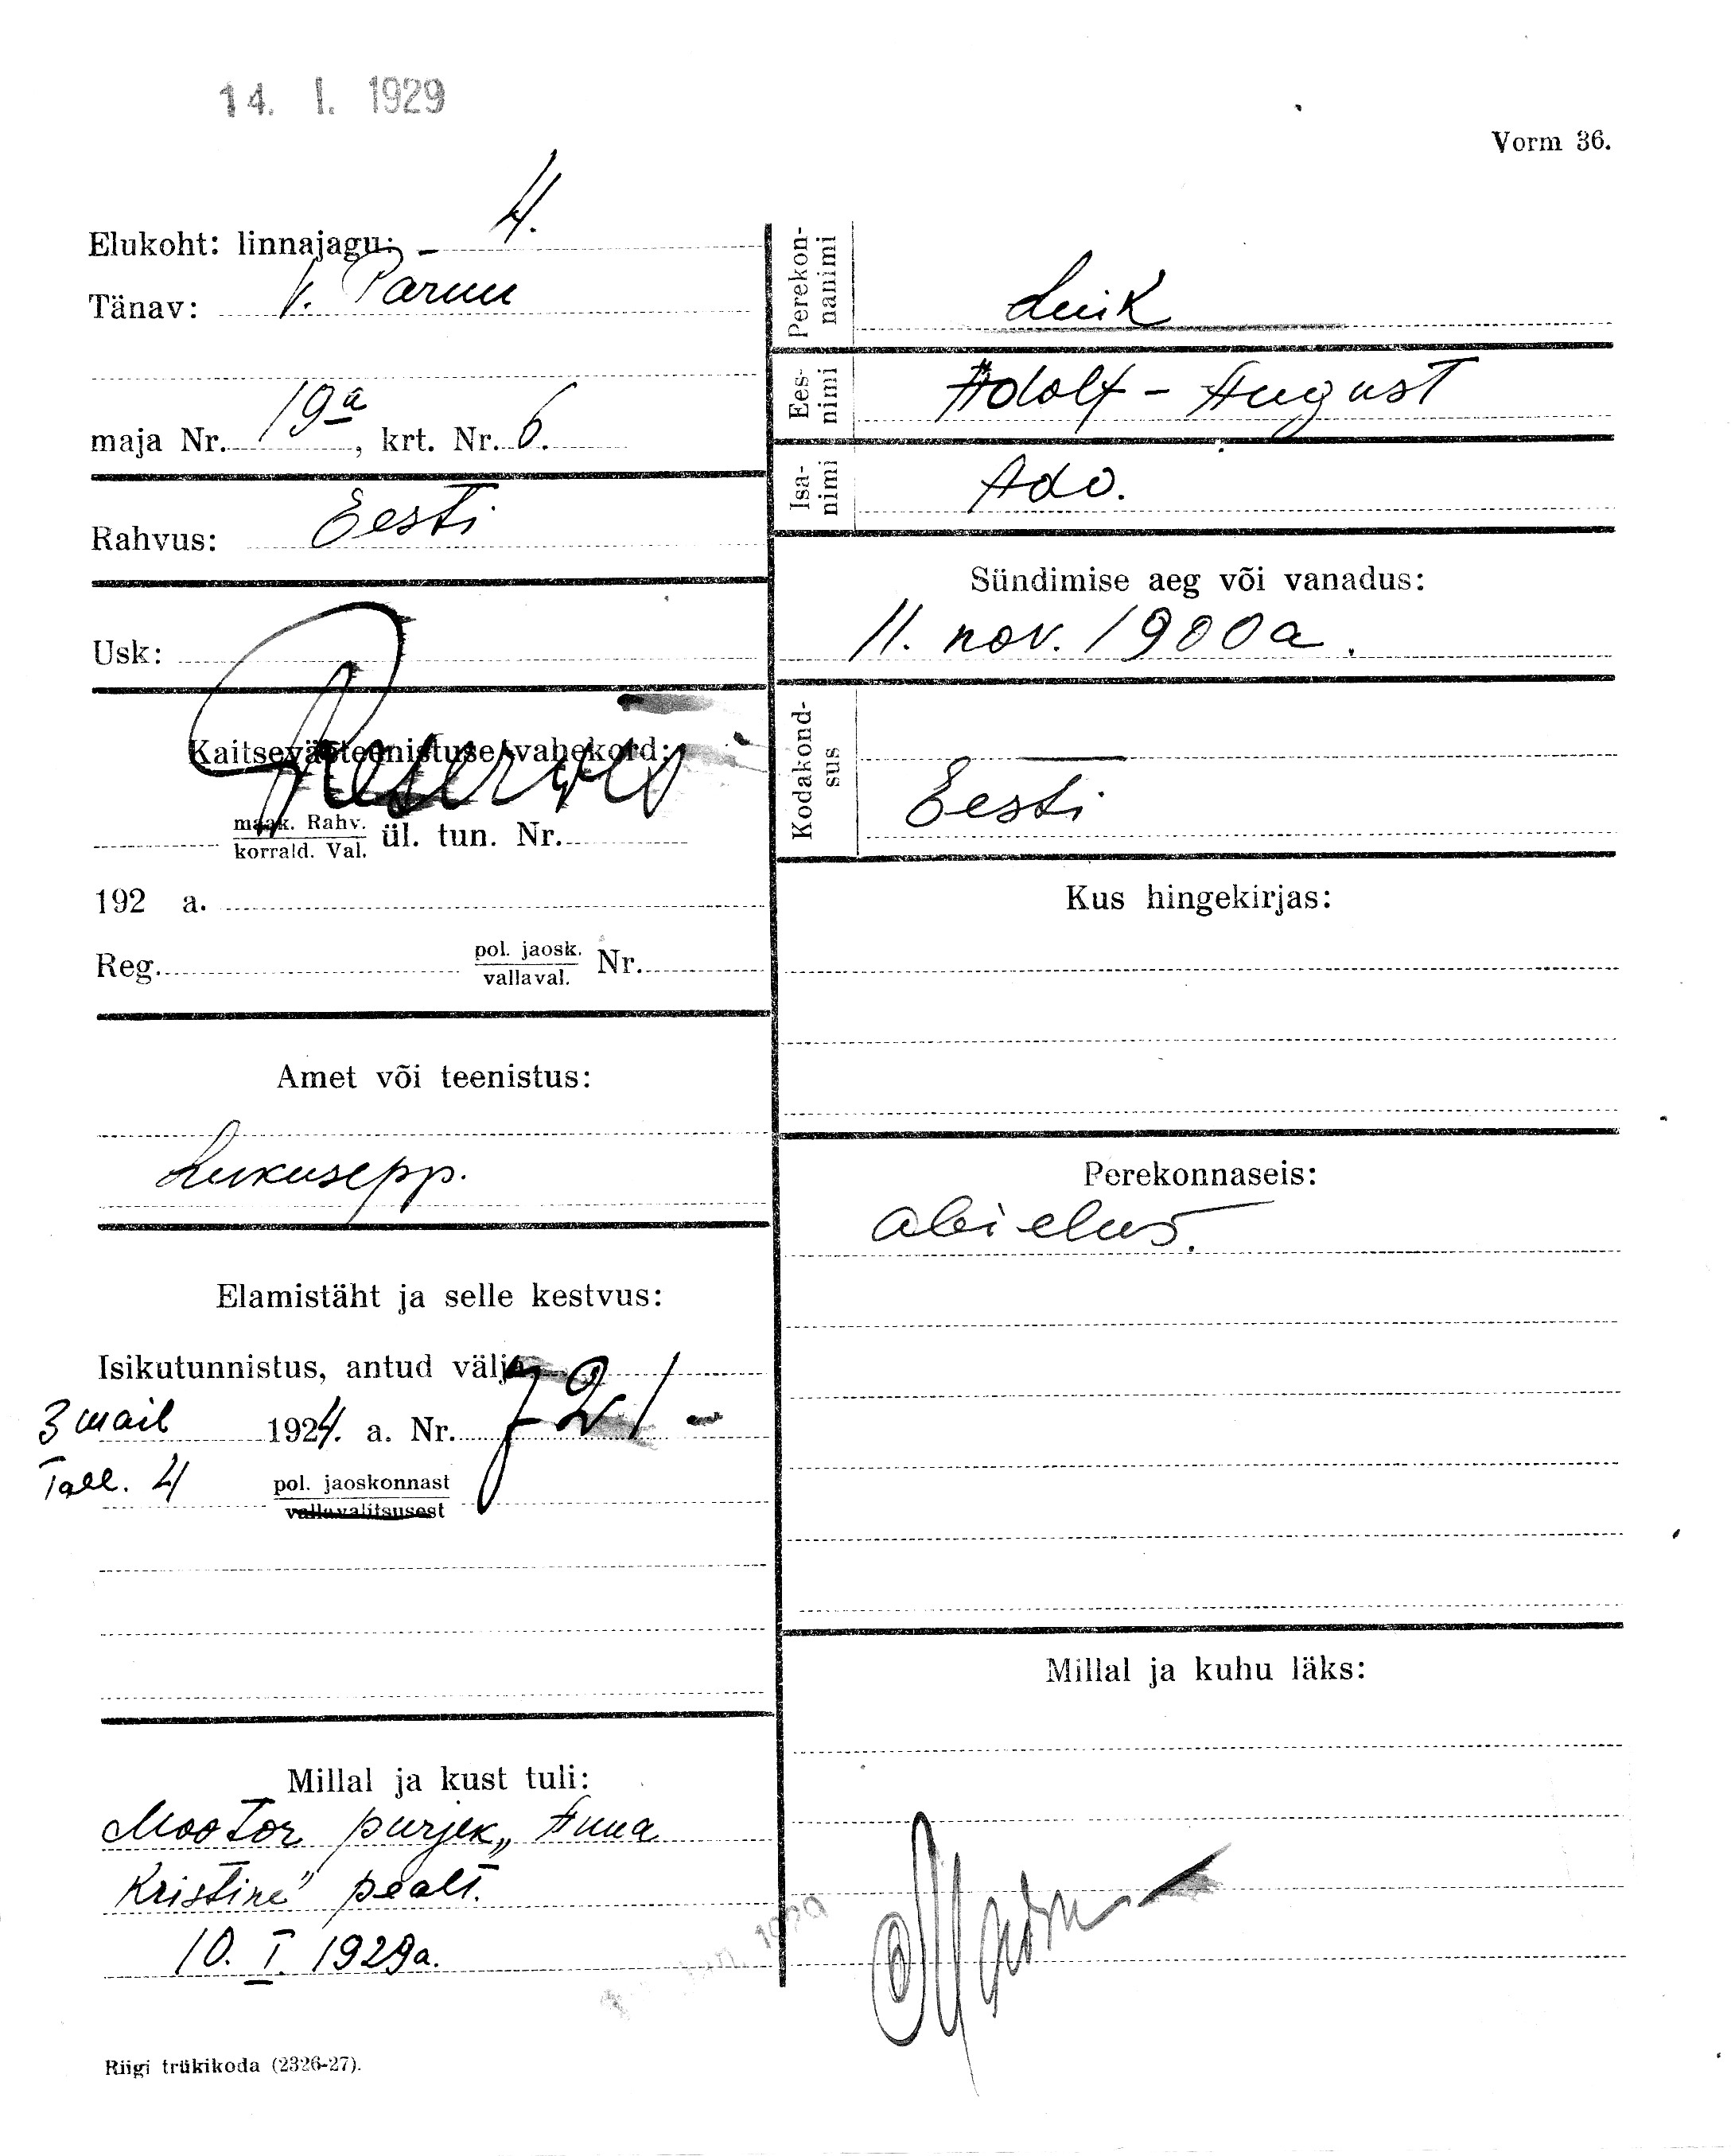 14. I. 1929
Vorm 36.
Elukoht: linnajagu: 4.
Tänav: V. Pärnu
maja Nr. 19a, krt. Nr. 6.
Rahvus: Eesti
Usk:
Kaitseväeteenistuse vahekord:
Reservis
maak. Rahv.
korrald. Val. ül. tun. Nr.
192 a.
Reg. pol. jaosk. Nr.
vallaval.
Amet või teenistus:
Lukusepp.
Elamistäht ja selle kestvus:
Isikutunnistus, antud välja
3 mail 1924. a. Nr. 721-
Tall. 4 pol. jaoskonnast
vallavalitsusest
Millal ja kust tuli:
Mootor purjek „Anna
Kristine" pealt.
10. I. 1929a.
Riigi trükikoda (2326-27).
Perekon-
nanimi
Luik
Ees-
nimi
Adolf - August
Isa-
nimi
Ado.
Sündimise aeg või vanadus:
11. nov. 1900a.
Kodakond-
sus
Eesti
Kus hingekirjas:
Perekonnaseis:
abielus.
Millal ja kuhu läks: